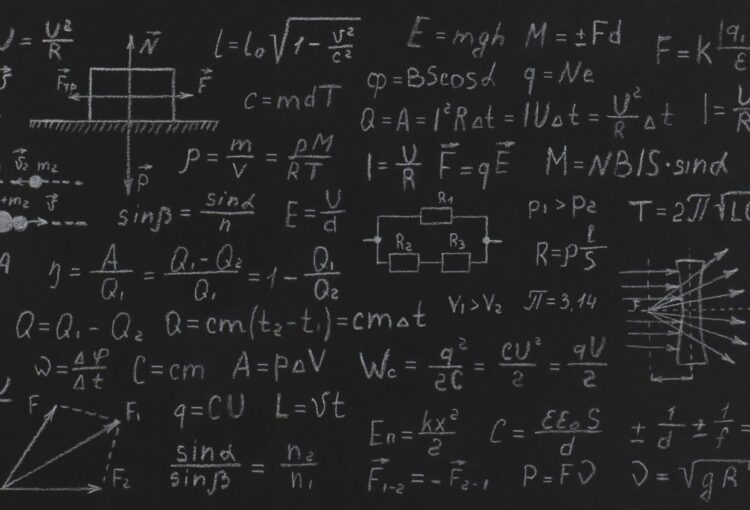 U = U²/R
N⃗
l = l₀√1 - v²/c²
E = mgh
M = ±Fd
F = K |q₁
F⃗тр
F⃗
c = mdT
φ = BScosα
q = Ne
Q = A = I²RΔt = IUΔt = U²/R Δt
I = U/R
P⃗
ρ = m/V = pM/RT
I = U/R
F⃗ = qE⃗
M = NBIS·sinα
v⃗₂ m₂
+m₂ v⃗
sinβ = sinα/n
E = U/d
R₁
R₂
R₃
p₁ > p₂
T = 2π√LC
R = ρ l/S
A
η = A/Q₁ = Q₁-Q₂/Q₁ = 1 - Q₁/Q₂
V₁ > V₂
π = 3,14
F
Q = Q₁ - Q₂
Q = cm(t₂-t₁) = cmΔt
ω = Δφ/Δt
C = cm
A = pΔV
Wc = q²/2C = CU²/2 = qU/2
F
F₁
F₂
q = CU
L = vt
Eп = kx²/2
C = εε₀S/d
± 1/d ± 1/f =
sinα/sinβ = n₂/n₁
F⃗₁₋₂ = -F⃗₂₋₁
P = Fv
v = √gR